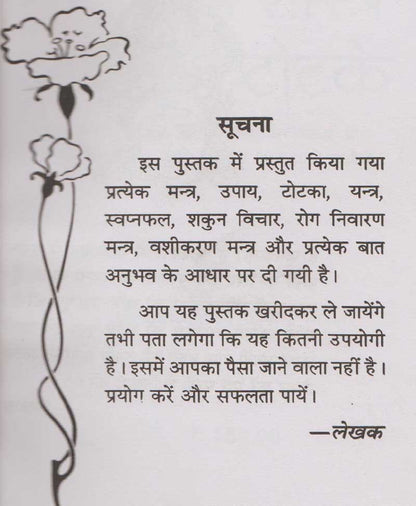 सूचना
इस पुस्तक में प्रस्तुत किया गया
प्रत्येक मन्त्र, उपाय, टोटका, यन्त्र,
स्वप्नफल, शकुन विचार, रोग निवारण
मन्त्र, वशीकरण मन्त्र और प्रत्येक बात
अनुभव के आधार पर दी गयी है।
आप यह पुस्तक खरीदकर ले जायेंगे
तभी पता लगेगा कि यह कितनी उपयोगी
है। इसमें आपका पैसा जाने वाला नहीं है।
प्रयोग करें और सफलता पायें।
—लेखक